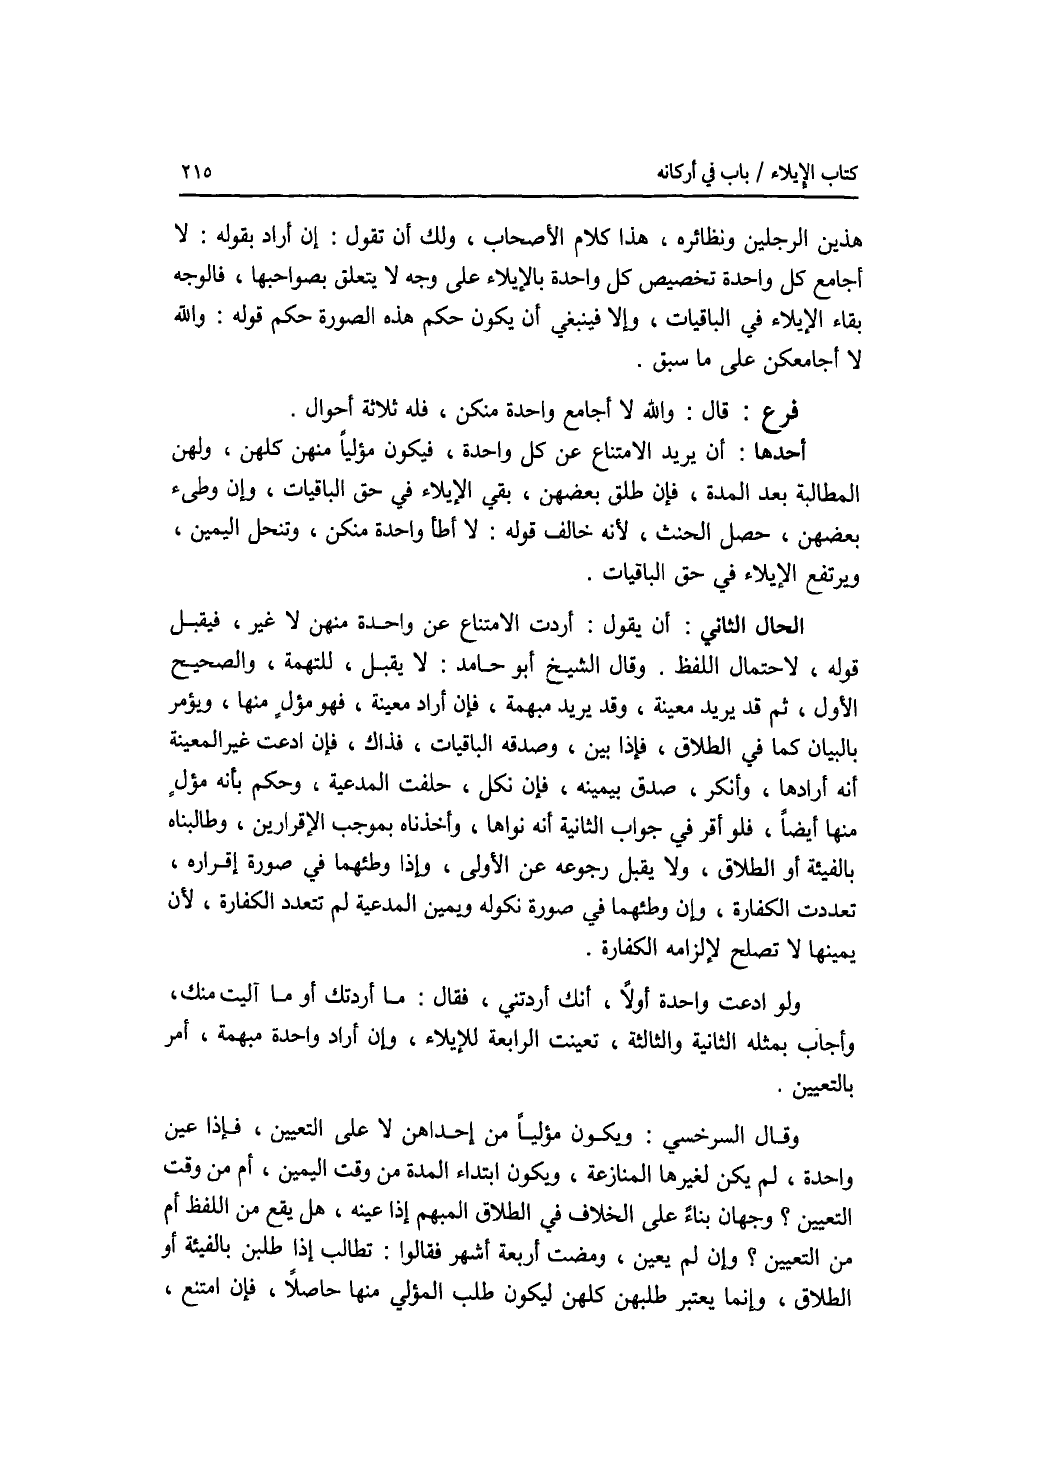 كتاب الإيلاء / باب في أركانه ٢١٥
هذين الرجلين ونظائره ، هذا كلام الأصحاب ، ولك أن تقول : إن أراد بقوله : لا
أجامع كل واحدة تخصيص كل واحدة بالإيلاء على وجه لا يتعلق بصواحبها ، فالوجه
بقاء الإيلاء في الباقيات ، وإلا فينبغي أن يكون حكم هذه الصورة حكم قوله : والله
لا أجامعكن على ما سبق .
فرع : قال : والله لا أجامع واحدة منكن ، فله ثلاثة أحوال .
أحدها : أن يريد الامتناع عن كل واحدة ، فيكون مؤلياً منهن كلهن ، ولهن
المطالبة بعد المدة ، فإن طلق بعضهن ، بقي الإيلاء في حق الباقيات ، وإن وطىء
بعضهن ، حصل الحنث ، لأنه خالف قوله : لا أطأ واحدة منكن ، وتنحل اليمين ،
ويرتفع الإيلاء في حق الباقيات .
الحال الثاني : أن يقول : أردت الامتناع عن واحدة منهن لا غير ، فيقبل
قوله ، لاحتمال اللفظ . وقال الشيخ أبو حامد : لا يقبل ، للتهمة ، والصحيح
الأول ، ثم قد يريد معينة ، وقد يريد مبهمة ، فإن أراد معينة ، فهو مؤلٍ منها ، ويؤمر
بالبيان كما في الطلاق ، فإذا بين ، وصدقه الباقيات ، فذاك ، فإن ادعت غير المعينة
أنه أرادها ، وأنكر ، صدق بيمينه ، فإن نكل ، حلفت المدعية ، وحكم بأنه مؤلٍ
منها أيضاً ، فلو أقر في جواب الثانية أنه نواها ، وأخذناه بموجب الإقرارين ، وطالبناه
بالفيئة أو الطلاق ، ولا يقبل رجوعه عن الأولى ، وإذا وطئهما في صورة إقراره ،
تعددت الكفارة ، وإن وطئهما في صورة نكوله ويمين المدعية لم تتعدد الكفارة ، لأن
يمينها لا تصلح لإلزامه الكفارة .
ولو ادعت واحدة أولاً ، أنك أردتني ، فقال : ما أردتك أو ما آليت منك ،
وأجاب بمثله الثانية والثالثة ، تعينت الرابعة للإيلاء ، وإن أراد واحدة مبهمة ، أمر
بالتعيين .
وقال السرخسي : ويكون مؤلياً من إحداهن لا على التعيين ، فإذا عين
واحدة ، لم يكن لغيرها المنازعة ، ويكون ابتداء المدة من وقت اليمين ، أم من وقت
التعيين ؟ وجهان بناءً على الخلاف في الطلاق المبهم إذا عينه ، هل يقع من اللفظ أم
من التعيين ؟ وإن لم يعين ، ومضت أربعة أشهر فقالوا : تطالب إذا طلبن بالفيئة أو
الطلاق ، وإنما يعتبر طلبهن كلهن ليكون طلب المؤلي منها حاصلاً ، فإن امتنع ،